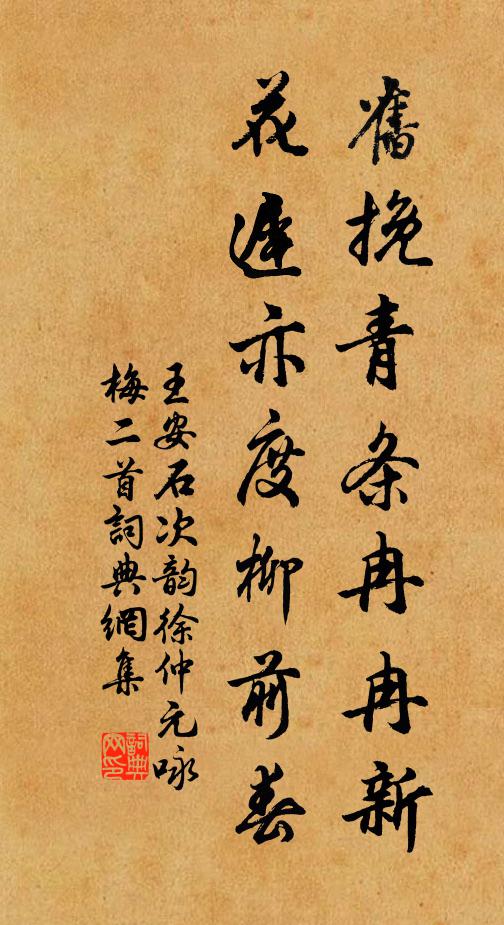 舊挽青条冉冉新
花遲亦度柳前春
王安石次韵徐仲元咏
梅二首詞典網集
詞典
网印